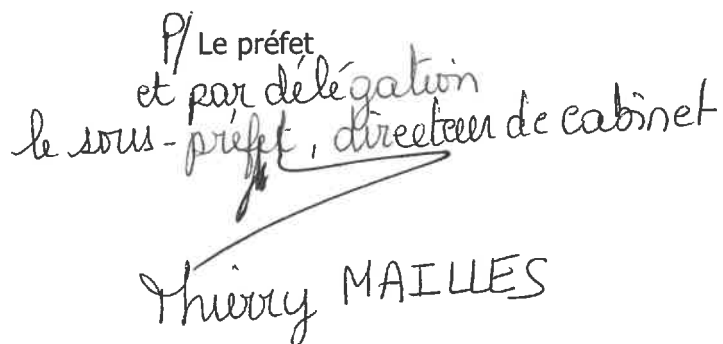 P/ Le préfet
et par délégation
le sous-préfet, directeur de cabinet
Thierry MAILLES